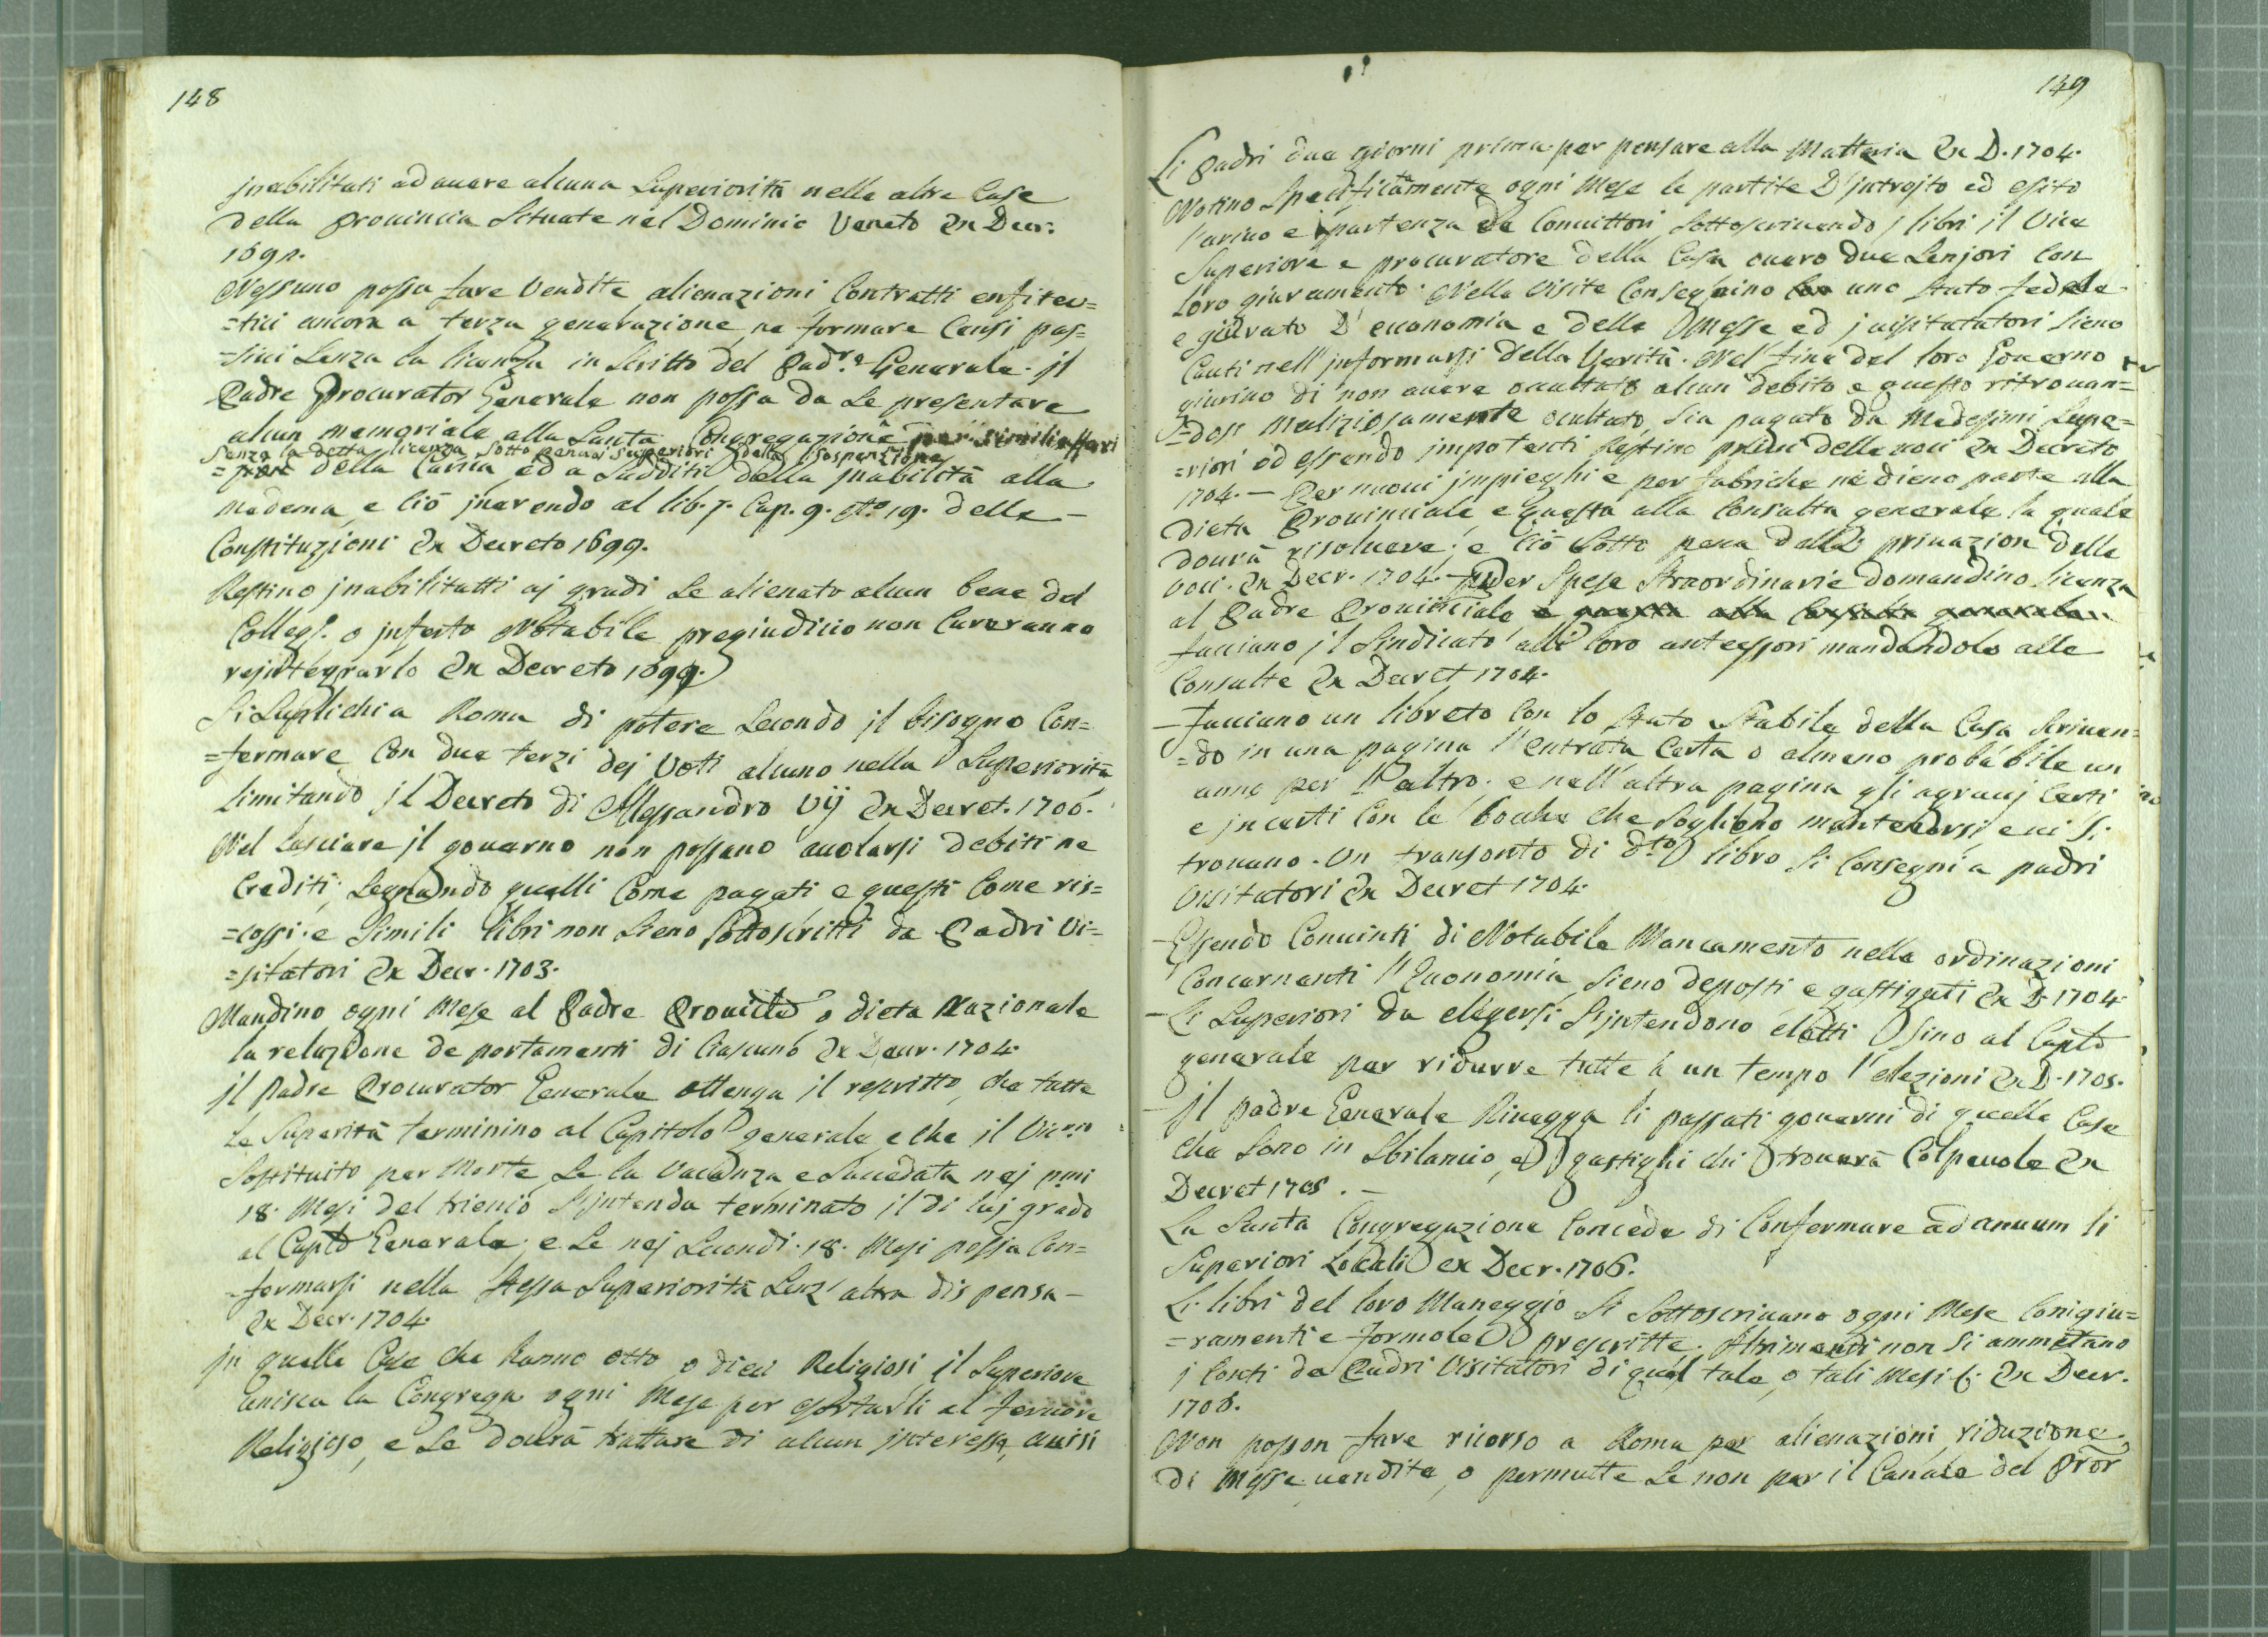 148
jnabilitati ad auere alcuna Superiorità nelle altre Case
della Prouincia Situate nel Dominio Veneto Ex Decr:
1692.
Nessuno possa fare Vendite alienazioni Contratti enfiteu=
=tici ancora a terza generazione, ne formare Censi pas=
=siui Senza la licenza in Scritto del Padre Generale. jl
Padre Procurator Generale non possa da Se presentare
alcun memoriale alla Santa Congregazione per simili affari
Senza la detta licenza Sotto pena a Superiori della Sospenzione
della Carica ed a Sudditi della jnabilità alla
medema, e Ciò jnerendo al lib. 7. Cap. 9. nto 19. delle –
Constituzioni Ex Decreto 1699.
Restino jnabilitatti aj gradi Se alienato alcun bene del
Collegs. o jnferto Notabile pregiudicio non Cureranno
rejntegrarlo Ex Decreto 1699.
Si Suplichi a Roma di potere Secondo jl bisogno Con=
=fermare Con due terzi dej Voti alcuno nella Superiorità
limitando jl Decreto di Allessandro Vij Ex Decret. 1706.
Nel lasciare jl gouerno non possano auolarsi debiti ne
Crediti, Segnando quelli Come pagati e questi Come ris=
=cossi. e Simili libri non Sieno Sottoscritti da Padri Vi=
=sitatori Ex Decr. 1703.
Mandino ogni Mese al Padre Prouile o dieta Nazionale
la relazione de portamenti di Ciascuno Ex Decr. 1704.
jl Padre Procurator Generale ottenga il rescritto, che tutte
Le Superità terminino al Capitolo generale e che il Vic
Sostituito per Morte, Se la Vacanza e Succedata nej pmi
18. Mesi del trienio S'jntenda terminato jl di luj grado
al Caplo Generale; e Se nej Secondi. 18. Mesi possa Con=
=fermarsi nella Stessa Superiorità Senz' altra dispensa –
Ex Decr. 1704.
jn quelle Case che hanno otto o dieci Religiosi, il Superiore
unisca la Congrega ogni Mese per esortarli al feruore
Religioso, e Se dourà trattare di alcun jnteresse, auisi
149
Li Padri due giorni prima per pensare alla Matteria Ex D. 1704.
Notino Specifictamente ogni Mese le partite D'jntrojto ed esito
l'ariuo e partenza de Conuittori, Sottoscriuendo j libri il Vice
Superiore e procuratore della Casa ouero due Senjori Con
loro giuramento. Nelle Visite Conseghino uno Stato fedele
e giurato D' economia e delle Messe ed j uisitatatori Sieno
Cauti nell' jnformarsi della Verità. Nel fine del loro Gouerno
giurino di non auere occultato alcun debito e questo ritrouan=
=dosi Maliziosamente ocultato, Sia pagato da Medessimi Supe=
=riori ed essendo impotenti Restino priui delle uoci Ex Decreto
1704. — Per nuoui jmpieghi e per fabriche nè dieno parte alla
Dieta Prouinciale e questa alla Consulta generale la quale
dourà risoluere; e Ciò Sotto pena della priuazion delle
voci. Ex Decr. 1704. – Per Spese Straordinarie domandino licenza
al Padre Prouinciale e questa alla Consulta generale
facciano jl Sindicato alli loro antecessori mandandolo alle
Consulte Ex Decret 1704.
– Facciano un libreto Con lo Stato Stabile della Casa Scriuen=
=do in una pagina l'entrata Certa o almeno probabile un
anno per l'altro; e nell' altra pagina gli agrauj Certi
e jncerti Con le bocche che Sogliono mantenersi, e ui Si
trouano. Un transonto di dto libro Si Consegni a padri
Visitatori Ex Decret 1704.
– Essendo Conuinti di Notabile Mancamento nelle ordinazioni
Concernenti l'Economia Sieno deposti e gastigati Ex D. 1704
– Li Superiori da elegersi S'jntendono eletti Sino al Caplo
generale per ridurre tutte à un tempo l'elezioni Ex D. 1705.
– Jl padre Generale Riuegga li passati gouerni di quelle Case
che Sono in Sbilancio, e gastighi chi trouerà Colpeuole Ex
Decret 1705. –
La Santa Congregazione Concede di Confermare ad anuum li
Superiori Locali ex Decr. 1706.
Li libri del loro Maneggio Si Sottoscriuano ogni Mese Conigiu=
=ramenti e formole prescritte. Altrimenti non Si ammettano
j Conti da Padri Visitatori di quel tale, o tali Mesi &. Ex Decr.
1706.
Non posson fare ricorso a Roma per alienazioni, riduzione
di Messe uendite, o permutte Se non per il Canale del Pror